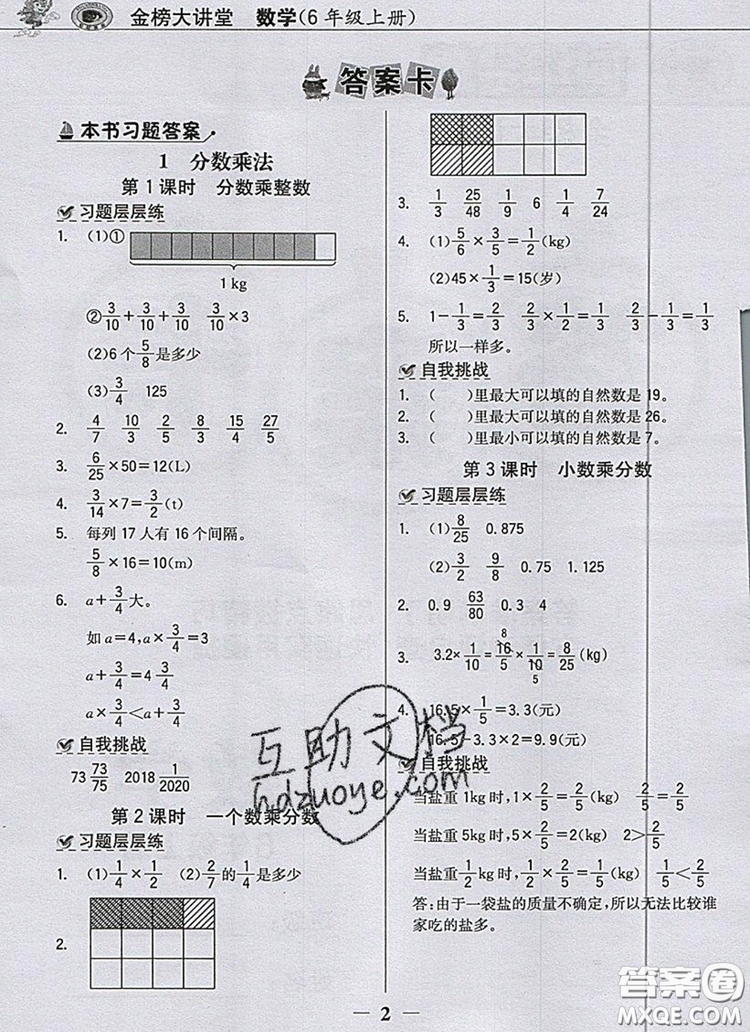 金榜大讲堂 数学(6年级上册)
答案卡
本书习题答案
1 分数乘法
第1课时 分数乘整数
习题层层练
1. (1)①
1 kg
②3/10+3/10+3/10 3/10×3
(2)6个5/8是多少
(3)3/4 125
2. 4/7 10/3 2/5 8/3 15/4 27/5
3. 6/25×50=12(L)
4. 3/14×7=3/2(t)
5. 每列17人有16个间隔。
5/8×16=10(m)
6. a+3/4大。
如a=4,a×3/4=3
a+3/4=4 3/4
a×3/4<a+3/4
自我挑战
73 73/75 2018 1/2020
第2课时 一个数乘分数
习题层层练
1. (1)1/4×1/2 (2)2/7的1/4是多少
2.
3. 1/3 25/48 1/9 6 1/2 7/24
4. (1)5/6×3/5=1/2(kg)
(2)45×1/3=15(岁)
5. 1-1/3=2/3 2/3×1/2=1/3 2/3-1/3=1/3
所以一样多。
自我挑战
1. ( )里最大可以填的自然数是19。
2. ( )里最大可以填的自然数是26。
3. ( )里最小可以填的自然数是7。
第3课时 小数乘分数
习题层层练
1. (1)8/25 0.875
(2)3/4 2/5 1.25
2. 0.9 63/80 3.4
3. 3.2×1/10=16/5×1/10=8/25(kg)
4. 16.5×1/5=3.3(元)
16.5-3.3×2=9.9(元)
自我挑战
当盐重1kg时,1×2/5=2/5(kg) 2/5=2/5
当盐重5kg时,5×2/5=2(kg) 2>2/5
当盐重1/2kg时,1/2×2/5=1/5(kg) 1/5<2/5
答:由于一袋盐的质量不确定,所以无法比较谁
家吃的盐多。
2
互助文档
hdzuoye.com
答案圈
MXQE.COM